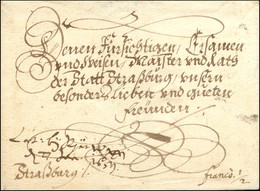 Denen Fürsichtigen, Ersamen
und Weisen, Maister und Rats
der Statt Straßburg, unsern
besonders Lieben und gueten
Freunden.
Straßburg
franco. 1/2